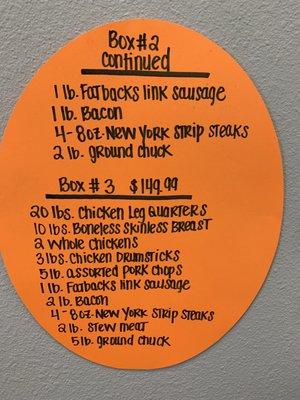 Box #2
continued
1 lb. Fatbacks link sausage
1 lb. Bacon
4-8oz. New York Strip Steaks
2 lb. ground chuck
Box #3 $149.99
20 lbs. Chicken Leg Quarters
10 lbs. Boneless Skinless Breast
2 whole chickens
3 lbs. Chicken Drumsticks
5 lb. assorted Pork Chops
1 lb. Fatbacks link sausage
2 lb. Bacon
4-8oz. New York Strip Steaks
2 lb. Stew meat
5 lb. ground chuck